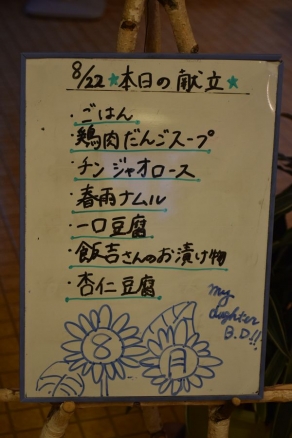 8/22 ★本日の献立★
・ごはん
・鶏肉だんごスープ
・チンジャオロース
・春雨ナムル
・一口豆腐
・飯吉さんのお漬け物
・杏仁豆腐
my
dughter
B.D!!
8月